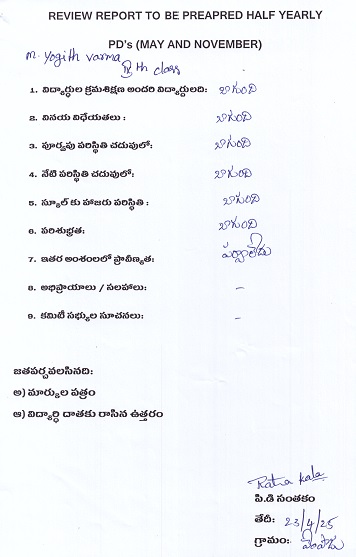 REVIEW REPORT TO BE PREAPRED HALF YEARLY
PD's (MAY AND NOVEMBER)
M. Yogith Varma
IV th class
1. విద్యార్థుల క్రమశిక్షణ అందరి విద్యార్థులది: బాగుంది
2. వినయ విధేయతలు : బాగుంది
3. పూర్వపు పరిస్థితి చదువులో: బాగుంది
4. నేటి పరిస్థితి చదువులో: బాగుంది
5. స్కూల్ కు హాజరు పరిస్థితి : బాగుంది
6. పరిశుభ్రత: బాగుంది
7. ఇతర అంశంలలో ప్రావీణ్యత: పర్వాలేదు
8. అభిప్రాయాలు / సలహాలు: -
9. కమిటీ సభ్యుల సూచనలు: -
జతపర్చవలసినది:
అ) మార్కుల పత్రం
ఆ) విద్యార్థి దాతకు రాసిన ఉత్తరం
Ratna kala
పి.డి సంతకం
తేదీ: 23/4/25
గ్రామం: